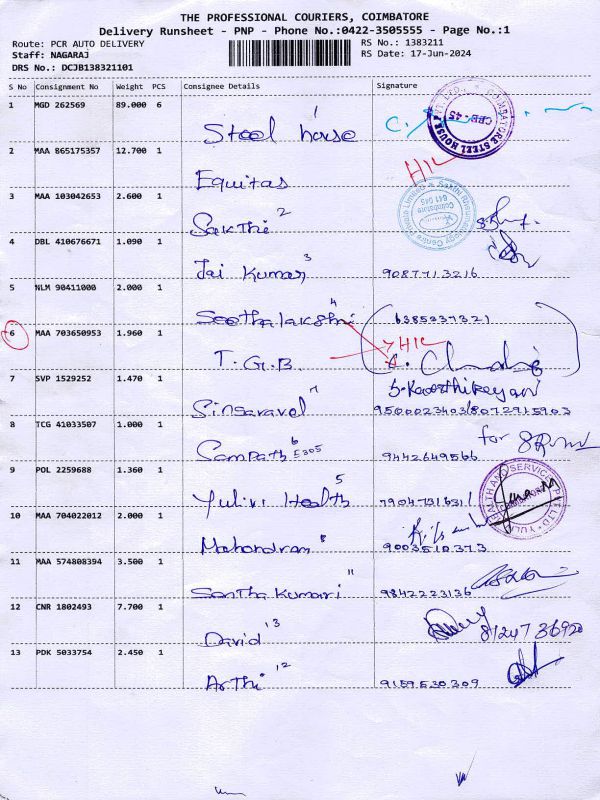 THE PROFESSIONAL COURIERS, COIMBATORE
Delivery Runsheet - PNP - Phone No.:0422-3505555 - Page No.:1
Route: PCR AUTO DELIVERY RS No.: 1383211
Staff: NAGARAJ RS Date: 17-Jun-2024
DRS No.: DCJB138321101
S No Consignment No Weight PCS Consignee Details Signature
1 MGD 262569 89.000 6
Steel house 1
2 MAA 865175357 12.700 1
Equitas
3 MAA 103042653 2.600 1
Sakthi 2
4 DBL 410676671 1.090 1
Jai Kumar 3 9087713216
5 NLM 90411000 2.000 1
Seethalakshmi 4 6385237321
6 MAA 703650953 1.960 1
T.G.B.
7 SVP 1529252 1.470 1
S. Kaarthikeyan
Sinsaravel 7 9500023403/8072915903
8 TCG 41033507 1.000 1
Sampath 6 E305 9442649566 for
9 POL 2259688 1.360 1
Yulivi Health 5
10 MAA 704022012 2.000 1
Mahendran 8 9003510373
11 MAA 574808394 3.500 1
Santha Kumari 11 9842223136
12 CNR 1802493 7.700 1
David 13 8124736920
13 PDK 5033754 2.450 1
Arthi 12 9159530309